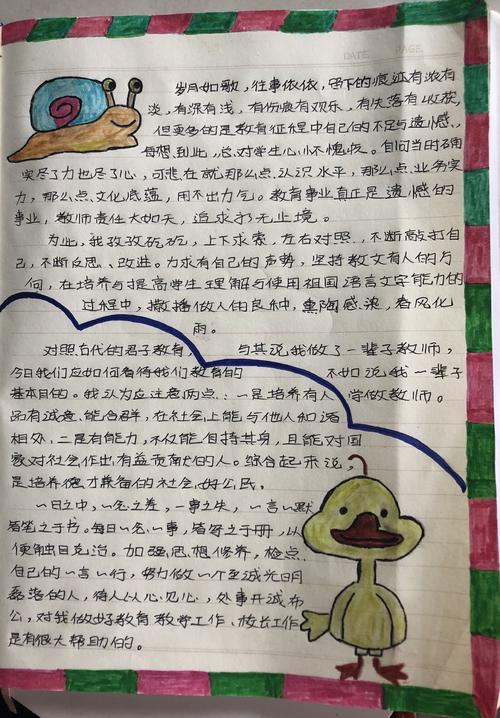 DATE PAGE
岁月如歌，往事依依，留下的痕迹有浓有
淡，有深有浅，有伤痕有欢乐，有失落有收获，
但更多的是教育征程中自己的不足与遗憾。
每想到此，总对学生心怀愧疚。自问当时确
实尽了力也尽了心，可悲在就那么点认识水平，那么点业务实
力，那么点文化底蕴，用不出力气。教育事业真正是遗憾的
事业，教师责任大如天，追求了无止境。
为此，我孜孜矻矻，上下求索，左右对照，不断敲打自
己，不断反思、改进。力求有自己的声势，坚持教文育人的方
向，在培养与提高学生理解与使用祖国语言文字能力的
过程中，撒播做人的良种，熏陶感染，春风化
雨。
对照古代的君子教育，
今日我们应如何看待我们教育的
基本目的。我认为应注意两点：一是培养有人
品有诚意、能合群，在社会上能与他人和谐
相处，二是有能力，不仅能自持其身，且能对国
家对社会作出有益贡献的人。综合起来说，
是培养德才兼备的社会好公民。
与其说我做了一辈子教师，
不如说我一辈子
学做教师。
一日之中，一念之差，一事之失，一言一默
皆笔之于书。每日一念一事，皆等之于册，以
便触目克治。加强思想修养，检点
自己的一言一行，努力做一个至诚光明
磊落的人，待人以心见心，处事开诚布
公，对我做好教育教学工作、校长工作
是有很大帮助的。